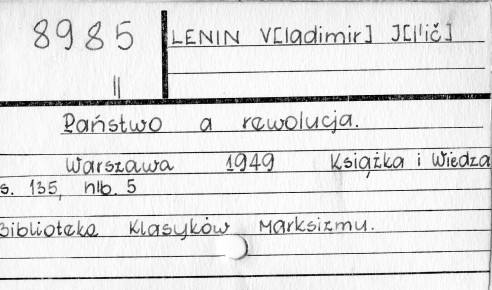 8985
LENIN V[ladimir] J[l'ič]
||
Państwo a rewolucja.
Warszawa 1949 Książka i Wiedza
s. 135, nlb. 5
Biblioteka Klasyków Marksizmu.